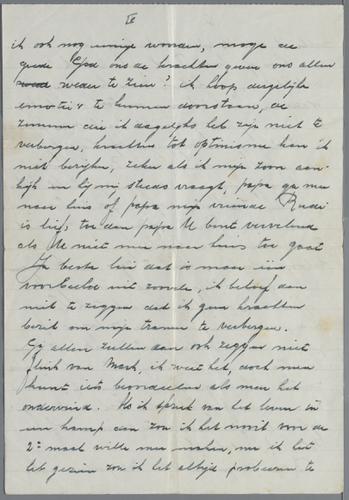 IV
ik ook nog eenige woorden, moge de
goede God ons de krachten geven ons allen
weder te zien! ik hoop dergelijke
emotie's te kunnen doorstaan, de
zenuwen die ik dagelijks let zijn niet te
verbergen, krachten tot optimisme kan ik
niet bereiken, zeker als ik mijn zoon aan-
kijk en hij mij steeds vraagt, papa ga mee
naar huis of papa mijn vriendje Rudi
is lief, toe dan papa U bent vervelend
als U niet mee naar huis toe gaat
Ja beste lui dat is maar één
voorbeeld uit zoovele, ik behoef dan
niet te zeggen dat ik geen krachten
bezit om mijn tranen te verbergen.
Gij allen zullen dan ook zeggen niet
flink van Mark, ik weet het, doch men
kunt iets beoordeelen als men het
ondervind. Als ik spreek van het leven in
een kamp dan zou ik het nooit voor de
2e maal willen mee maken, nu ik het
het gezien zou ik het altijd probeeren te